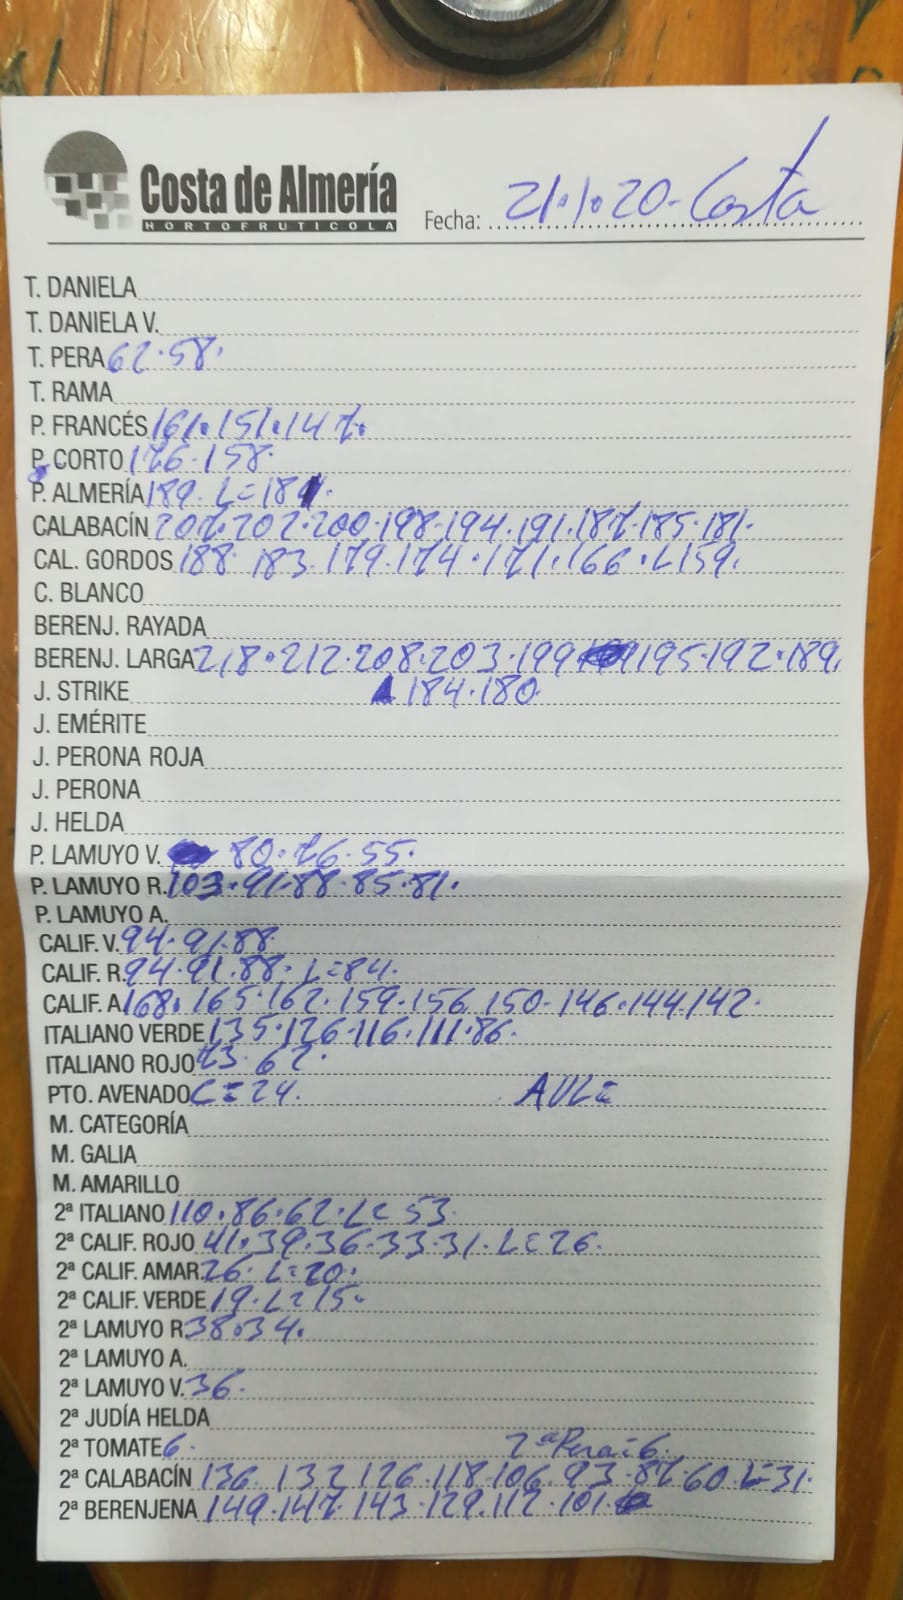 Costa de Almería
HORTOFRUTICOLA
Fecha: 21.1.20 - Costa
T. DANIELA
T. DANIELA V.
T. PERA 62.58.
T. RAMA
P. FRANCÉS 161.151.147.
P. CORTO 176.158.
P. ALMERÍA 189. L=181.
CALABACÍN 207.202.200.198.194.191.187.185.181.
CAL. GORDOS 188.183.179.174.171.166.L159.
C. BLANCO
BERENJ. RAYADA
BERENJ. LARGA 218.212.208.203.199 195.192.189.
J. STRIKE 184.180.
J. EMÉRITE
J. PERONA ROJA
J. PERONA
J. HELDA
P. LAMUYO V. 80.76.55.
P. LAMUYO R. 103.91.88.85.81.
P. LAMUYO A.
CALIF. V. 94.91.88.
CALIF. R. 94.91.88. L=84.
CALIF. A. 168.165.162.159.156.150.146.144.142.
ITALIANO VERDE 135.126.116.111.86.
ITALIANO ROJO 73.62.
PTO. AVENADO C=24. AVL=
M. CATEGORÍA
M. GALIA
M. AMARILLO
2ª ITALIANO 110.86.62.L=53.
2ª CALIF. ROJO 41.39.36.33.31. L=26.
2ª CALIF. AMAR. 26. L=20.
2ª CALIF. VERDE 19. L=15.
2ª LAMUYO R. 38.34.
2ª LAMUYO A.
2ª LAMUYO V. 36.
2ª JUDÍA HELDA
2ª TOMATE 6. 2ª Pera=6.
2ª CALABACÍN 136.132.126.118.106.93.87.60.L=31.
2ª BERENJENA 149.147.143.129.112.101.